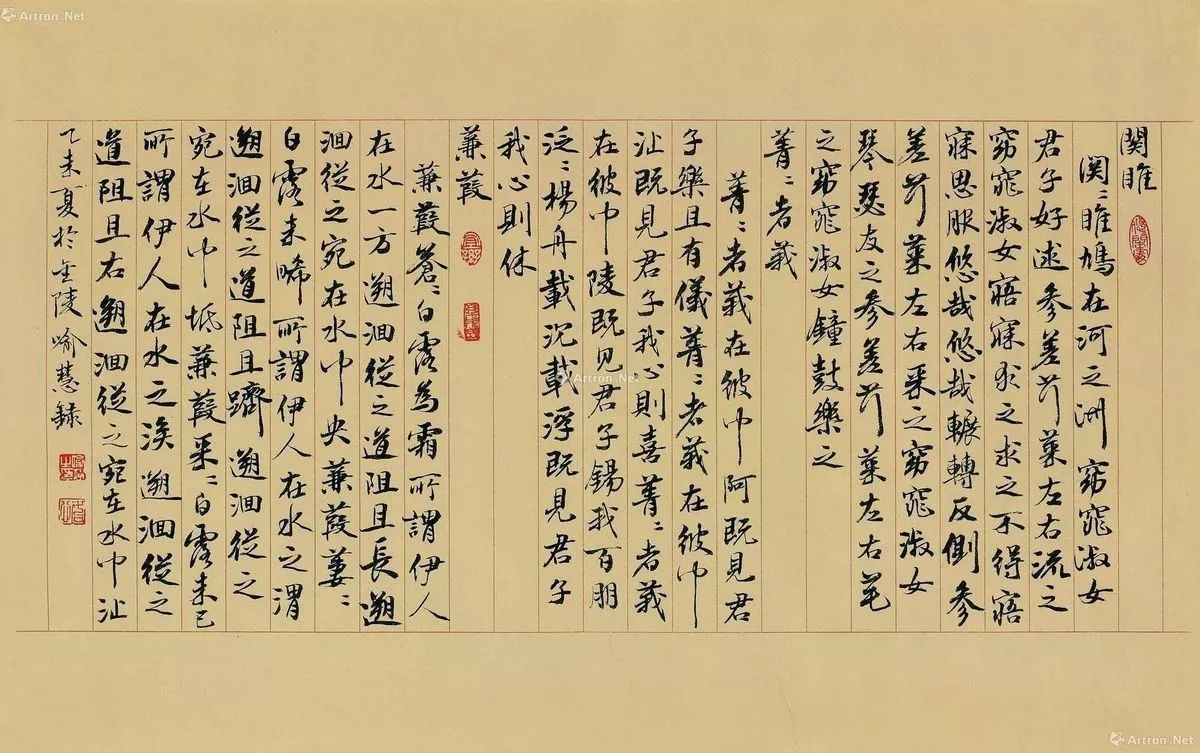 Artron.Net
關雎
関〻雎鳩在河之洲窈窕淑女
君子好逑參差荇菜左右流之
窈窕淑女寤寐求之求之不得寤
寐思服悠哉悠哉輾轉反側參
差荇菜左右采之窈窕淑女
琴瑟友之參差荇菜左右芼
之窈窕淑女鐘鼓樂之
菁〻者莪
菁〻者莪在彼中阿既見君
子樂且有儀菁〻者莪在彼中
沚既見君子我心則喜菁〻者莪
在彼中陵既見君子錫我百朋
泛〻楊舟載沉載浮既見君子
我心則休
蒹葭
蒹葭蒼〻白露為霜所謂伊人
在水一方遡洄從之道阻且長遡
洄從之宛在水中央蒹葭萋〻
白露未晞所謂伊人在水之湄
遡洄從之道阻且躋遡洄從之
宛在水中坻蒹葭采〻白露未已
所謂伊人在水之涘遡洄從之
道阻且右遡洄從之宛在水中沚
乙未夏於金陵喻慧錄
Artron.Net
Artron.Net